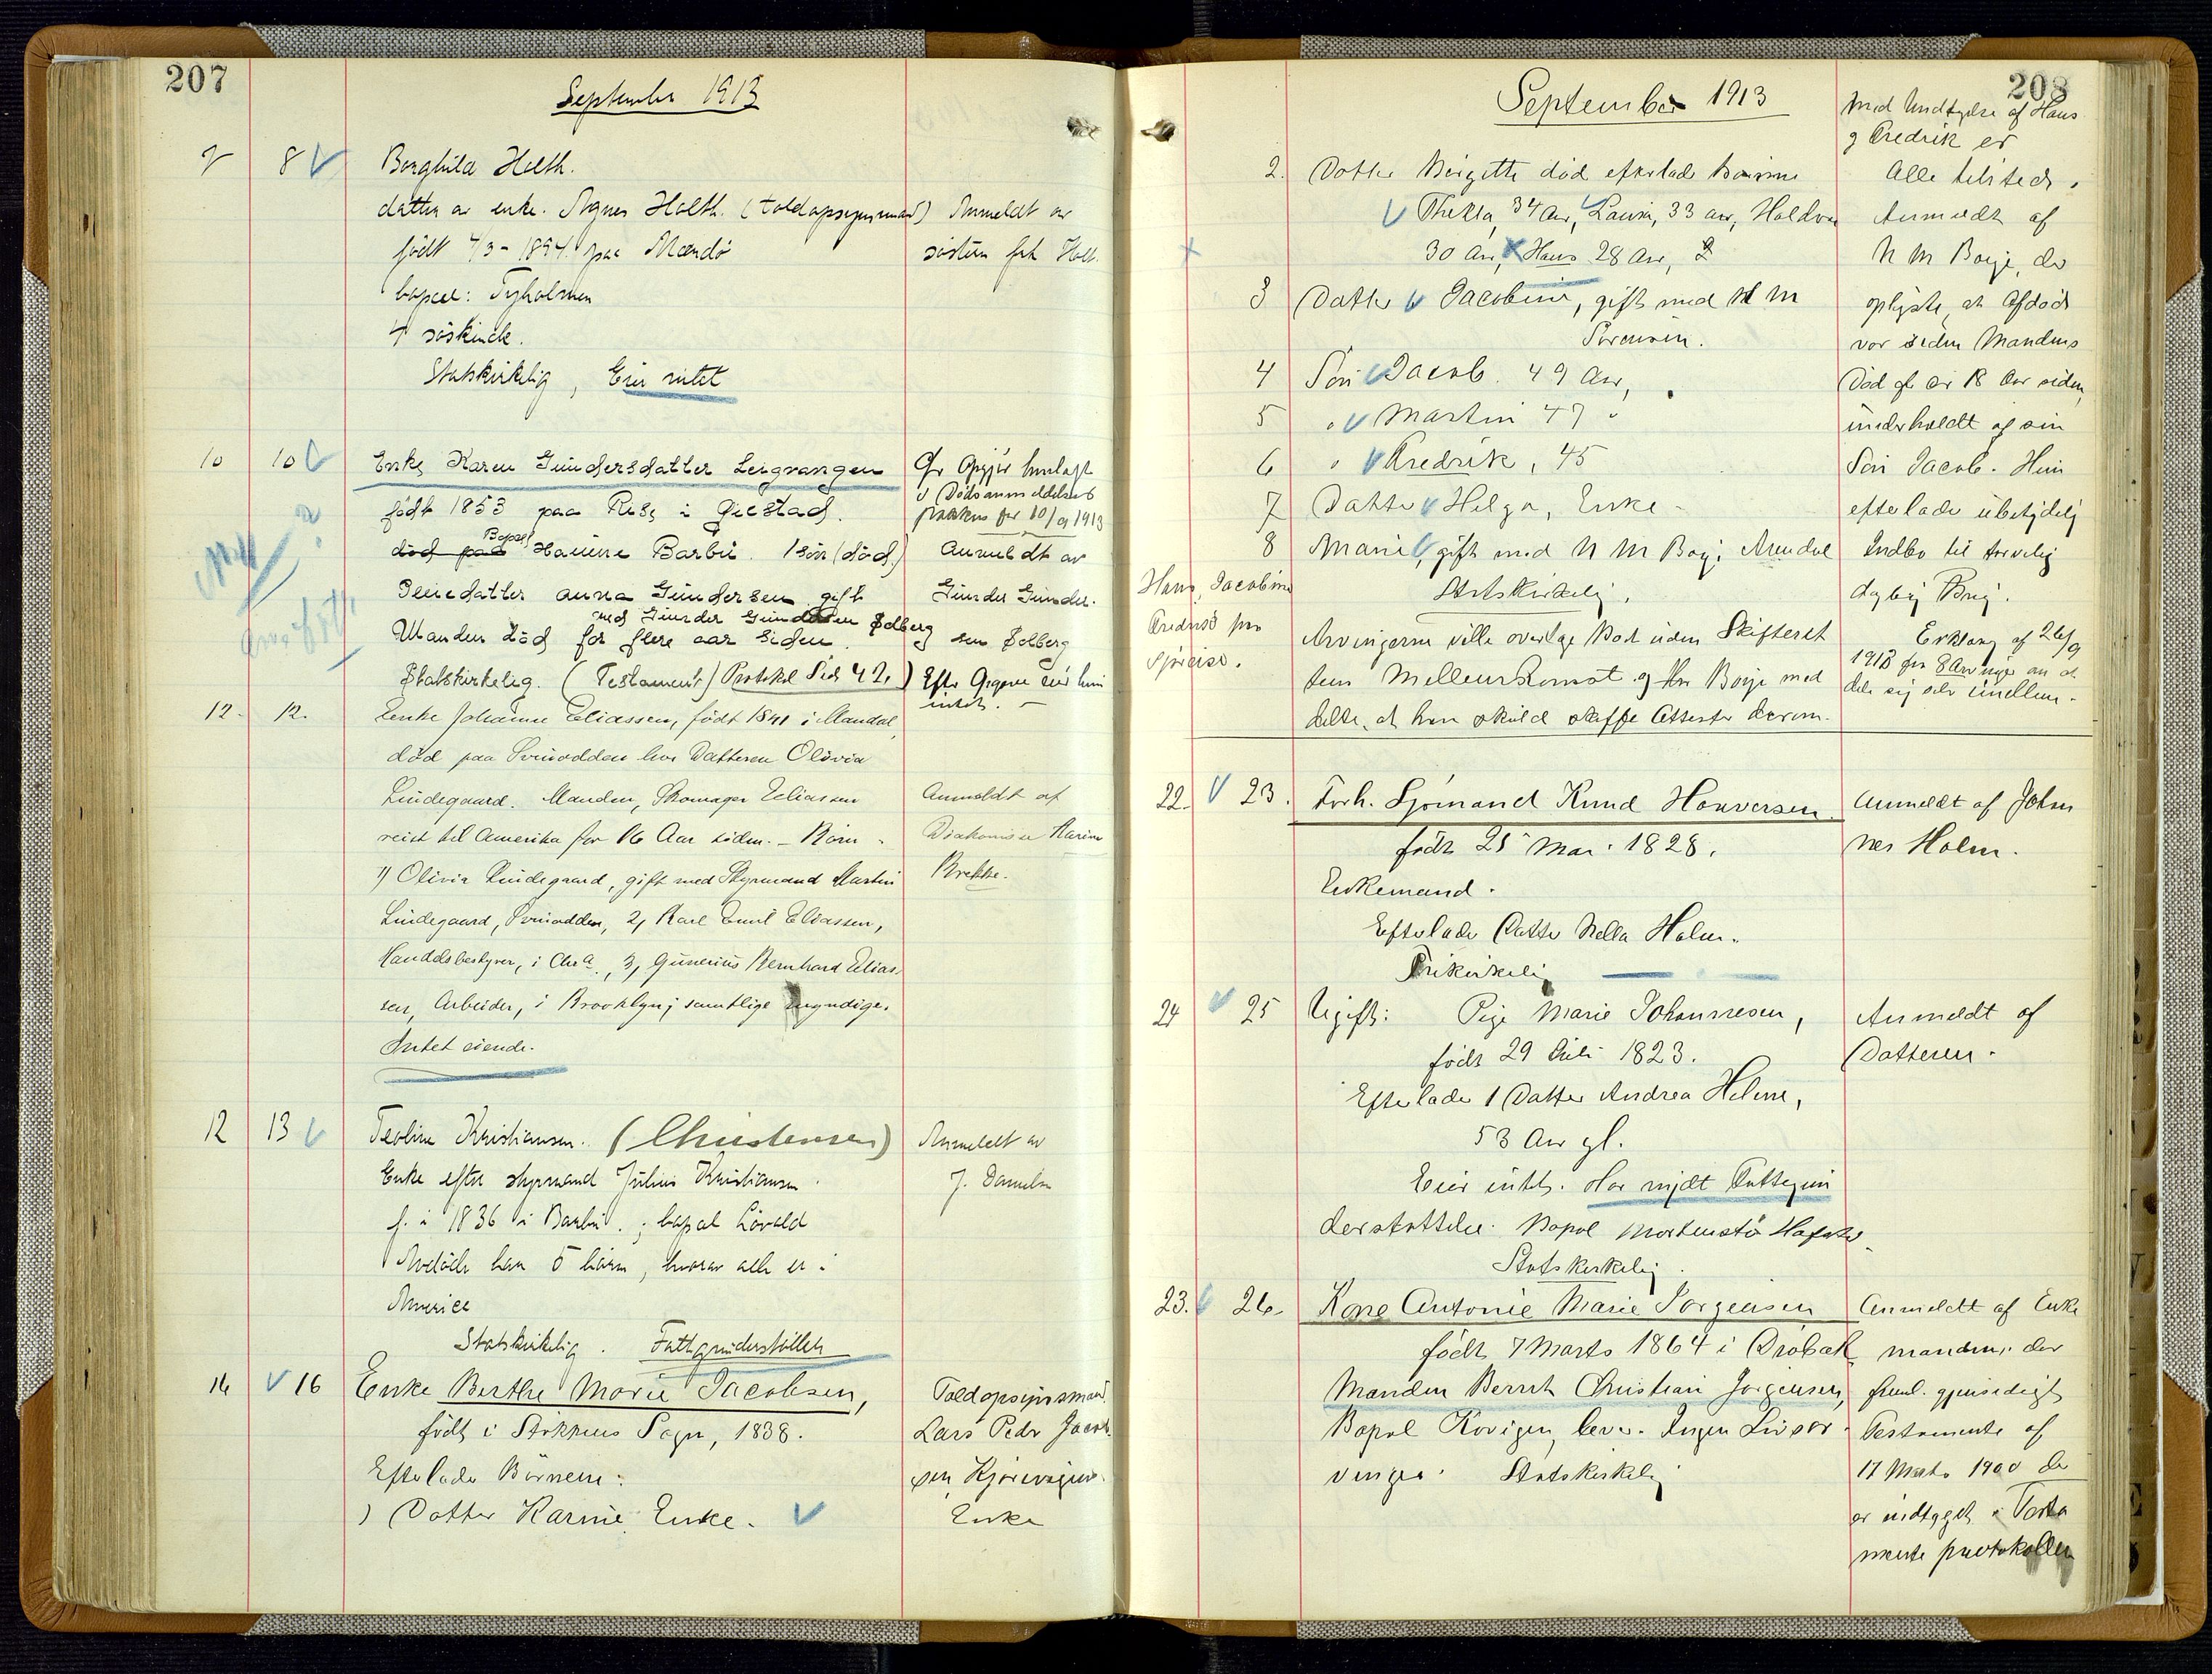 207
September 1913
7 8 Borghild Holth.
datter av enke Agnes Holth. (toldopsynsmand) Anmeldt av
født 4/3 - 1894 paa Mandø søsteren frk Holt.
bopæl: Tyholmen
4 søskende.
Statskirkelig, Eier intet
10 10 Enke Karen Gundersdatter Longvangen
født 1853 paa i Gjestad.
død paa Bopæl Barbu. 1 søn (død.)
Pleiedatter Anna Gundersen gift
med Gunder Gundersen Solberg
Manden død for flere aar siden.
Statskirkelig. (Testament) Protokol Side 42.)
Dødsanmeldelses
10/9 1913
Anmeldt av
Gunder Gunder-
sen Solberg
Efter Opgave eier hun
intet. -
12. 12. Enke Johanne Eliassen, født 1841 i Mandal,
død paa Svinodden hos Datteren Olivia
Lindegaard. Manden, Skomager Eliassen Anmeldt af
reist til Amerika for 16 Aar siden. - Børn - Diakonisse Karine
1) Olivia Lindegaard, gift med Styrmand Martin Brekke.
Lindegaard, Svinodden, 2, Karl Emil Eliassen,
Handelsbestyrer, i Chra., 3, Gunerius Bernhard Elias-
sen, Arbeider, i Brooklyn; samtlige myndige.
Intet eiende.
12 13 Teoline Kristiansen. (Christensen) Anmeldt av
Enke efter styrmand Julius Kristiansen J. Danielsen
f. i 1836 i Barbu. ; bopæl Løvold
Avdøde har 5 børn, hvorav alle er i
America
Statskirkelig. Fattigunderstøttet
14 16 Enke Berthe Marie Jacobsen, Toldopsynsmand
født i Stokkens Sogn, 1838. Lars Peder Jacob-
Efterlader Børnene: sen, Kjørvigens
1) Datter Karine, Enke. Enke
208
September 1913
2. Datter Birgitte død efterlade Børnene
Thekla, 34 Aar, Laura, 33 aar, Haldvor
30 Aar, Hans 28 Aar,
3 Datter Jacobine, gift med N M
Sørensen.
4 Søn Jacob. 49 Aar,
5 " Martin 47 "
6 " Fredrik, 45
7 Datter Helga, Enke -
8 Marie, gift med N M Boije Arendal
Statskirkelig.
Hans, Jacobine
Fredrik paa
Sjøreise.
Arvingerne ville overtage Boet uden Skifteret
tens Mellemkomst og Hr Boije med
delte, at han skulde skaffe Attester derom.
Med Undtagelse af Hans
og Fredrik er
Alle tilstede.
Anmeldt af
N M Boije, der
oplyste, at Afdøde
var siden Mandens
Død for 18 Aar siden,
underholdt af sin
Søn Jacob. Hun
efterlader ubetydelig
Indbo til
daglig Brug.
Erklæring af 26/9
1913 fra 8 Arvinger om at
dele sig selv imellem.
22. 23. Forh. Sjømand Knud Halvorsen. Anmeldt af Johan
født 25 Mai 1828. nes Holm.
Enkemand.
Efterlader Datter Nella Holm.
Frikirkelig
24 25 Ugift: Pige Marie Johannesen, Anmeldt af
født 29 Juli 1823. Datteren.
Efterlader 1 Datter Andrea Helene,
53 Aar gl.
Eier intet. Har nydt Fattigun
derstøttelse. Bopæl
Statskirkelig.
23. 26. Kone Antonie Marie Jørgensen Anmeldt af Enke
født 7 Marts 1864 i Drøbak manden, der
Manden Bernt Christian Jørgensen, freml. gjensidigt
Bopæl Kovigen, lever. Ingen Livsar- Testamente af
vinger. Statskirkelig 17 Marts 1900 der
er indtaget i Testa
mente protokollen